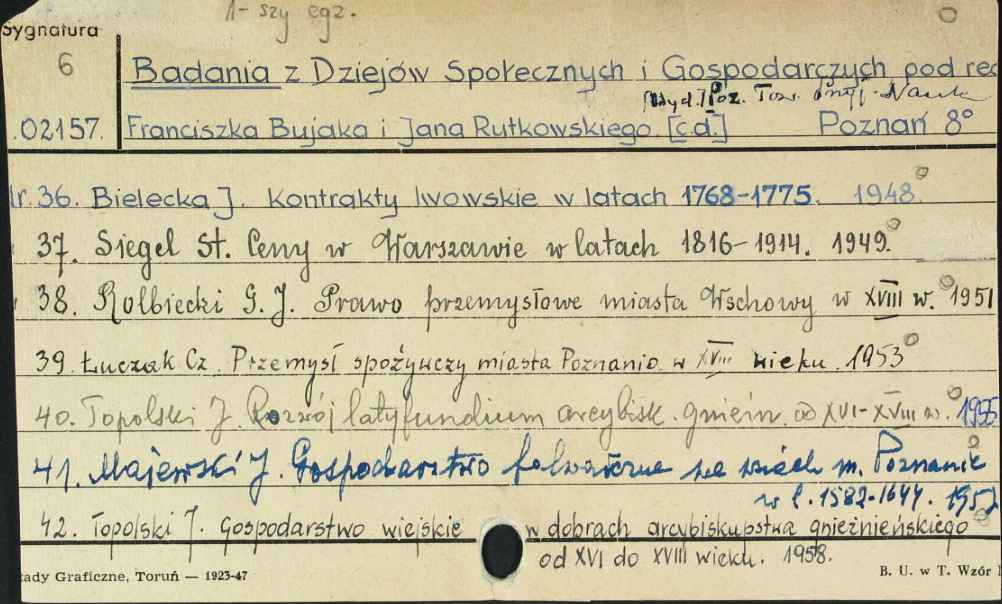 1-szy egz.
Sygnatura
6
Badania z Dziejów Społecznych i Gospodarczych pod red
[Wyd.] Poz. Tow. Przyj. Nauk
02157. Franciszka Bujaka i Jana Rutkowskiego [c.d.] Poznań 8°
Nr. 36. Bielecka J. Kontrakty lwowskie w latach 1768-1775. 1948.
37. Siegel St. Ceny w Warszawie w latach 1816-1914. 1949.
38. Kolbiecki G. J. Prawo przemysłowe miasta Wschowy w XVIII w. 1951
39. Łuczak Cz. Przemysł spożywczy miasta Poznania w XVIII wieku. 1953
40. Topolski J. Rozwój latyfundium arcybisk. gnieźn. od XVI-XVIII w. 1955
41. Majewski J. Gospodarstwo folwarczne we wsiach m. Poznania
w l. 1582-1644. 1957
42. Topolski J. Gospodarstwo wiejskie w dobrach arcybiskupstwa gnieźnieńskiego
od XVI do XVIII wieku. 1958.
łady Graficzne, Toruń — 1923-47
B. U. w T. Wzór